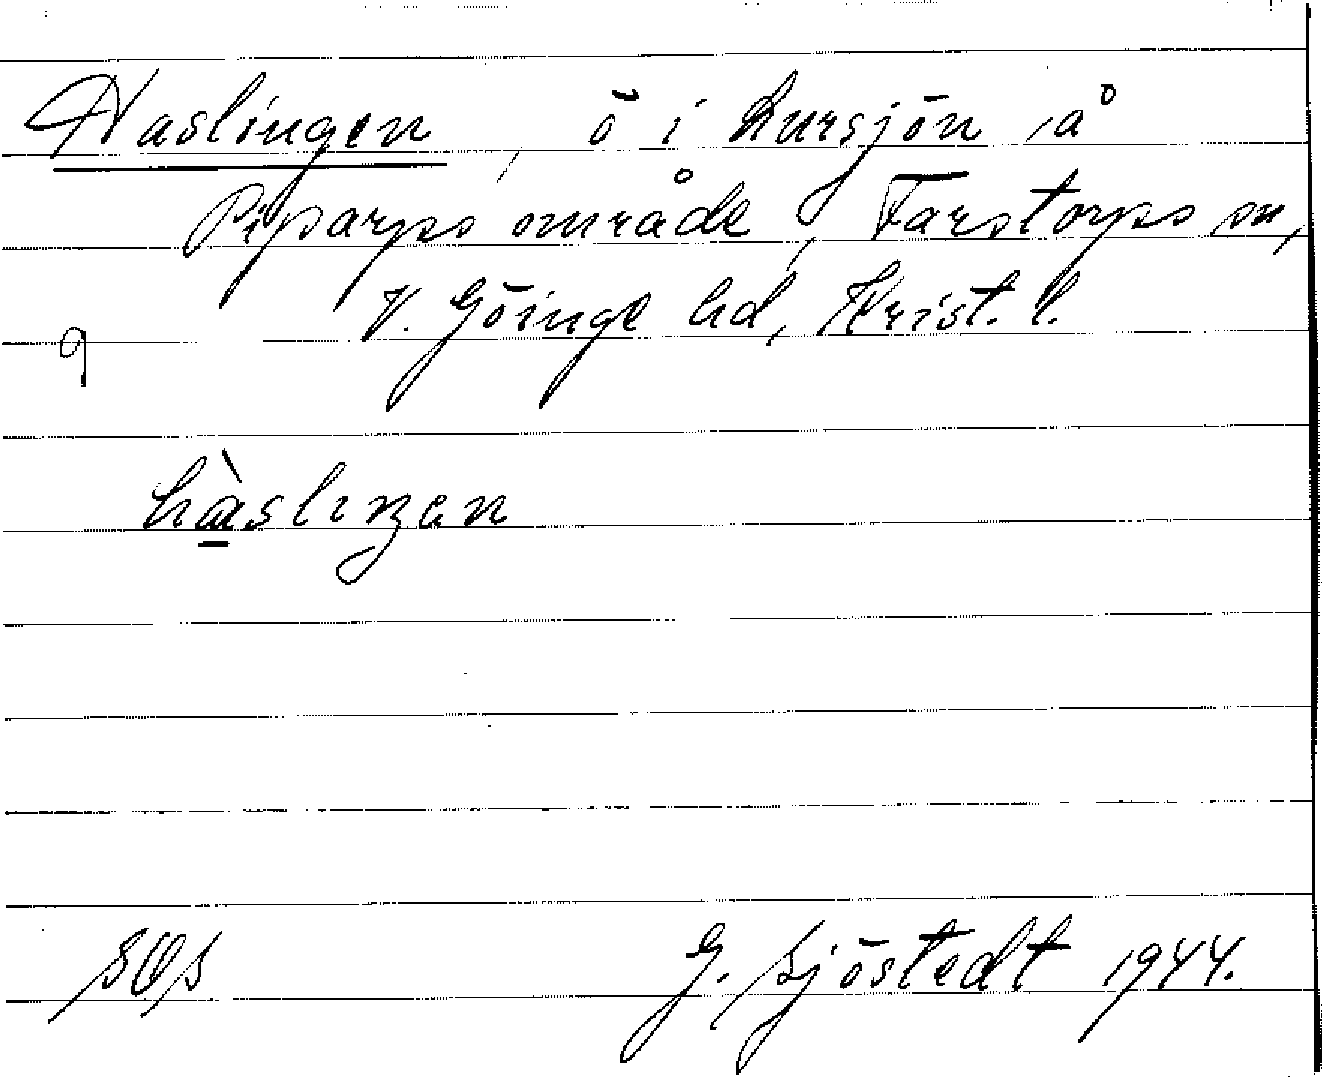 Haslingen, ö i Lursjön, å
Piparps område, Farstorps sn,
V. Göinge hd, Krist. l.
9
hàslıŋen
SOS G. Sjöstedt 1944.